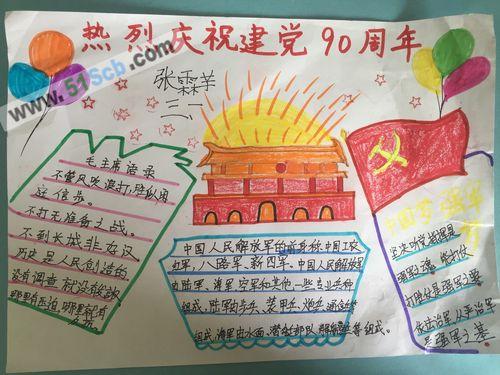 热烈庆祝建党90周年
www.51Scb.com
张霖芊
三、二
毛主席语录
不管风吹浪打,胜似闲
这信步。
不打无准备之战。
不到长城非好汉
历史是人民创造的
没有调查就没发言
哪里有压迫,哪里就有
中国人民解放军的前身称中国工农
红军,八路军、新四军、中国人民解放军
由陆军、海军空军和其他一些专业兵种
组成,陆军由步兵、装甲兵、炮兵通信等
组成,海军由水面、潜艇部队、等组成。
中国梦 强军
强军之魂,能打仗
打胜仗是强军之要
依法治军从严治军
是强军之基